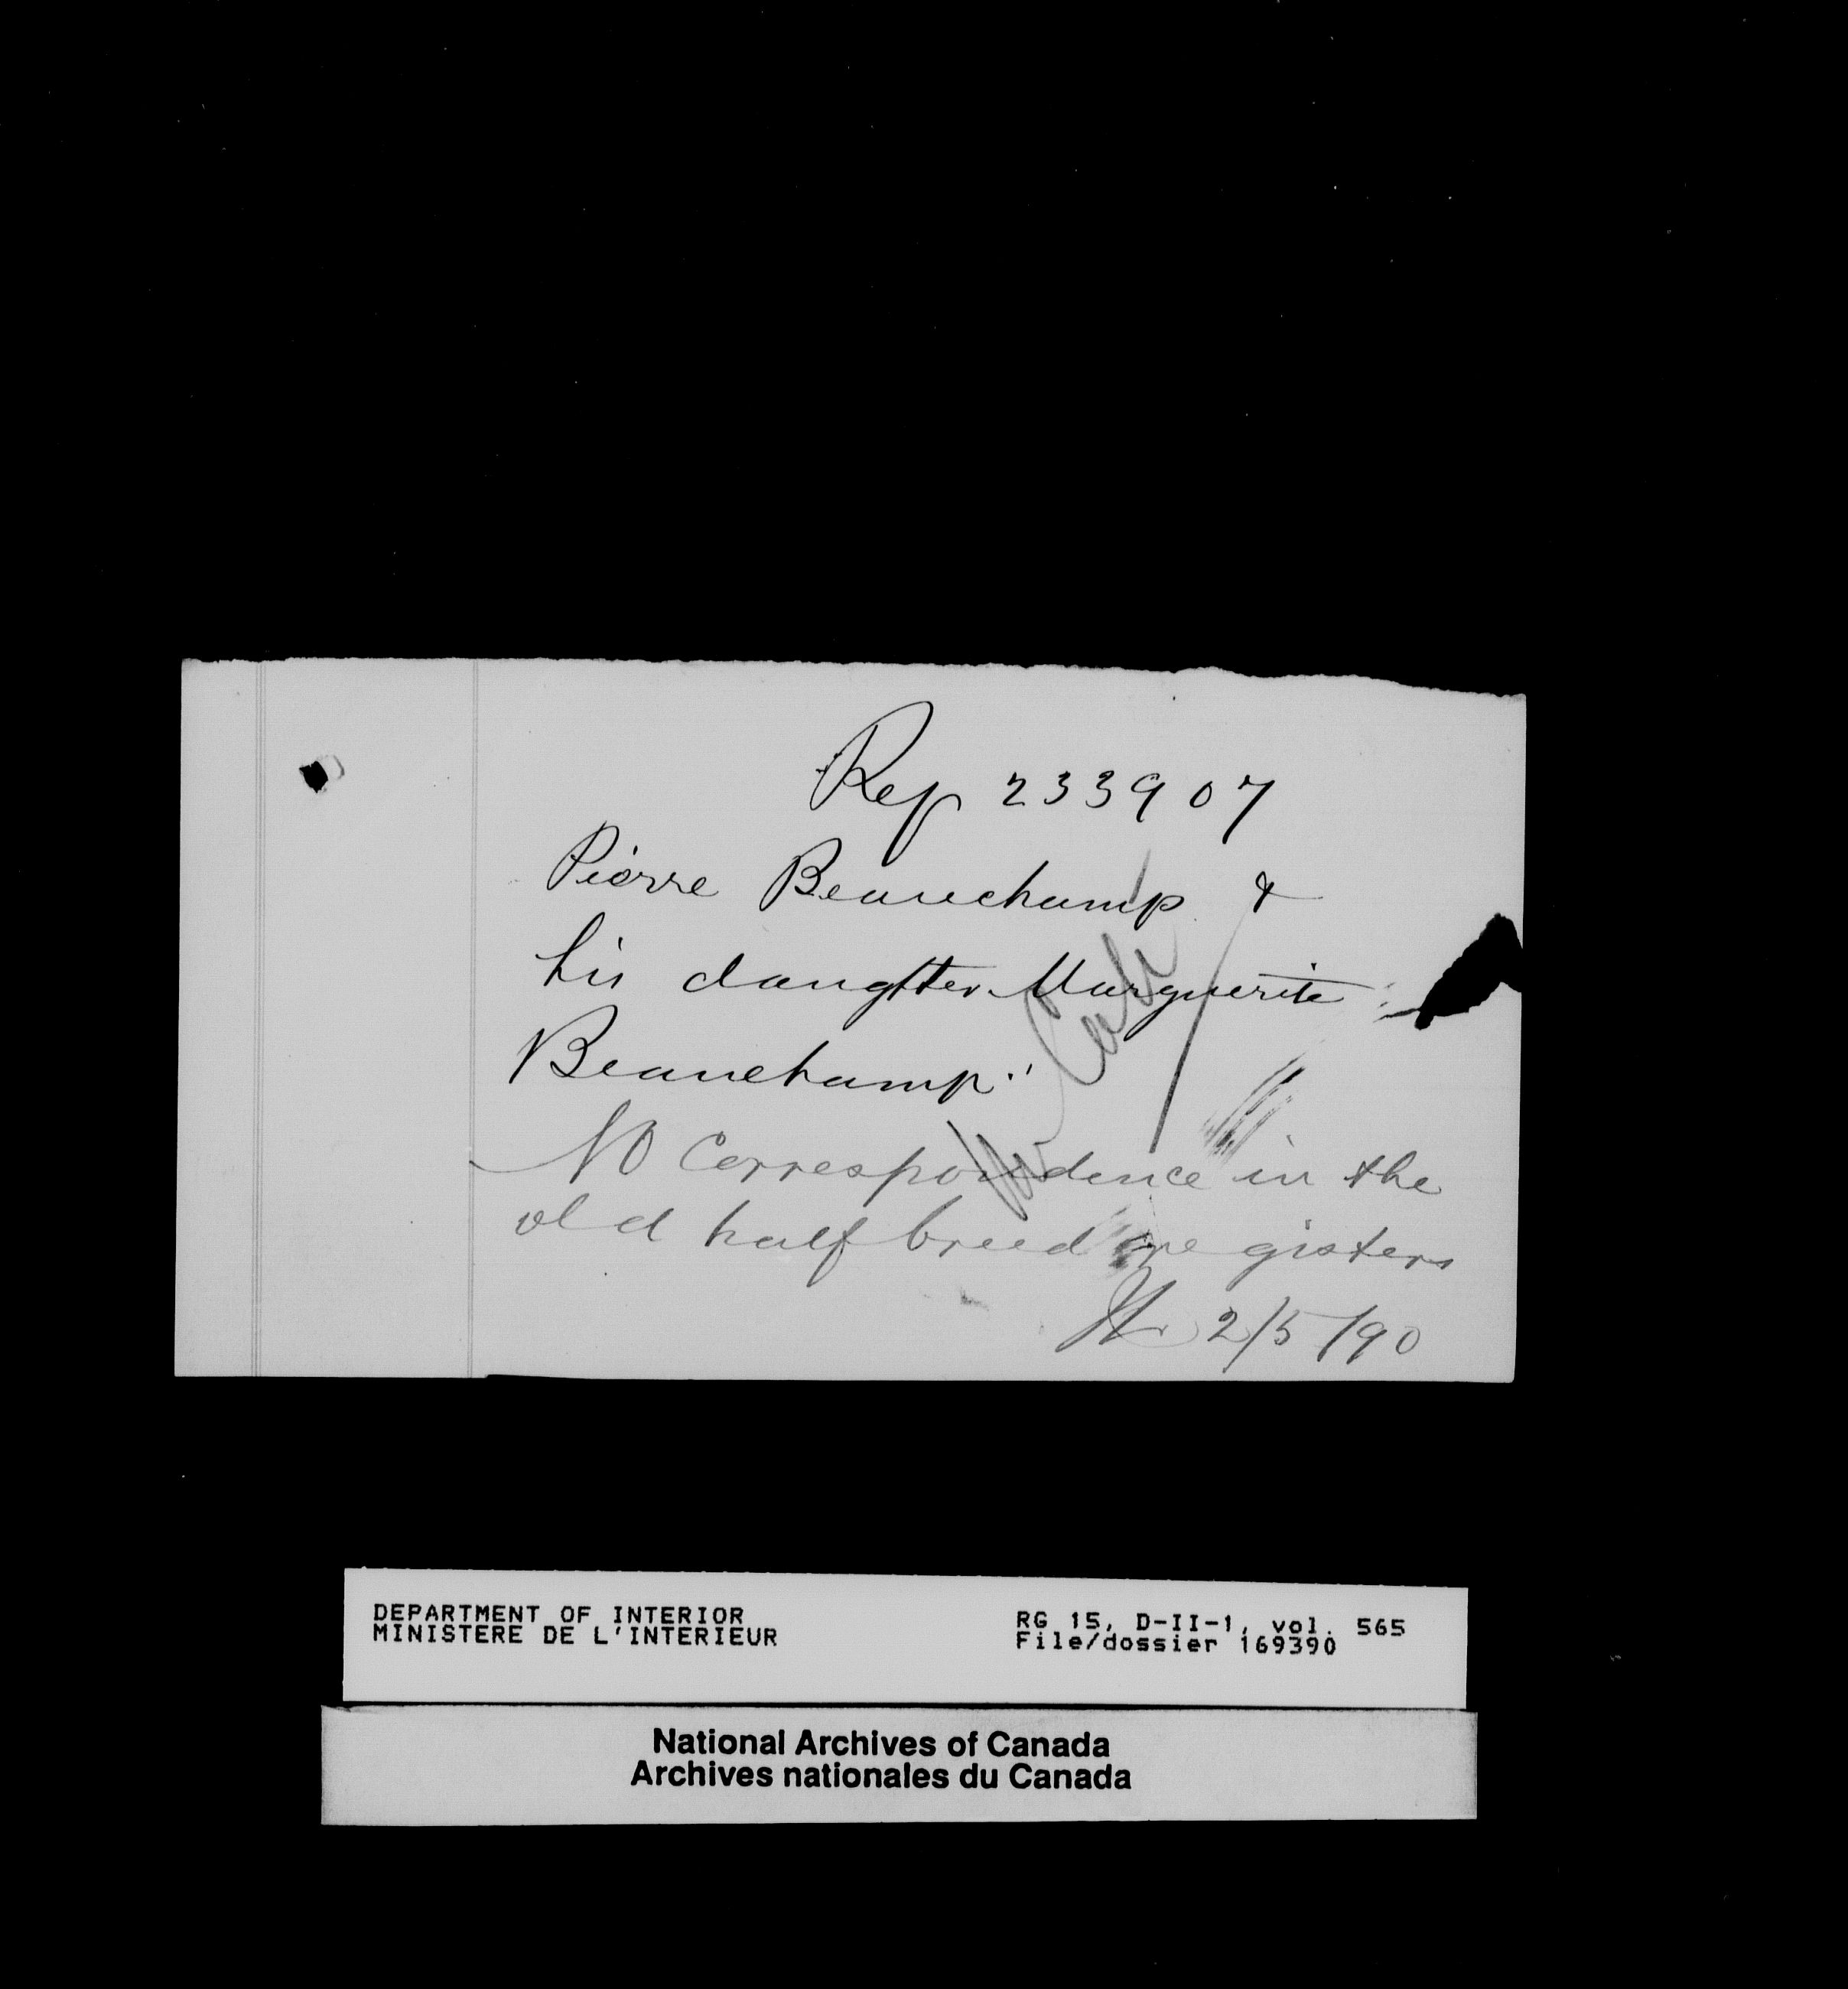 Rep 233907
Pierre Beauchamp &
his daughter Marguerite
Beauchamp.
No Correspondence in the
old half breed registers
2/5/90
DEPARTMENT OF INTERIOR
MINISTERE DE L'INTERIEUR
RG 15, D-II-1, vol. 565
File/dossier 169390
National Archives of Canada
Archives nationales du Canada